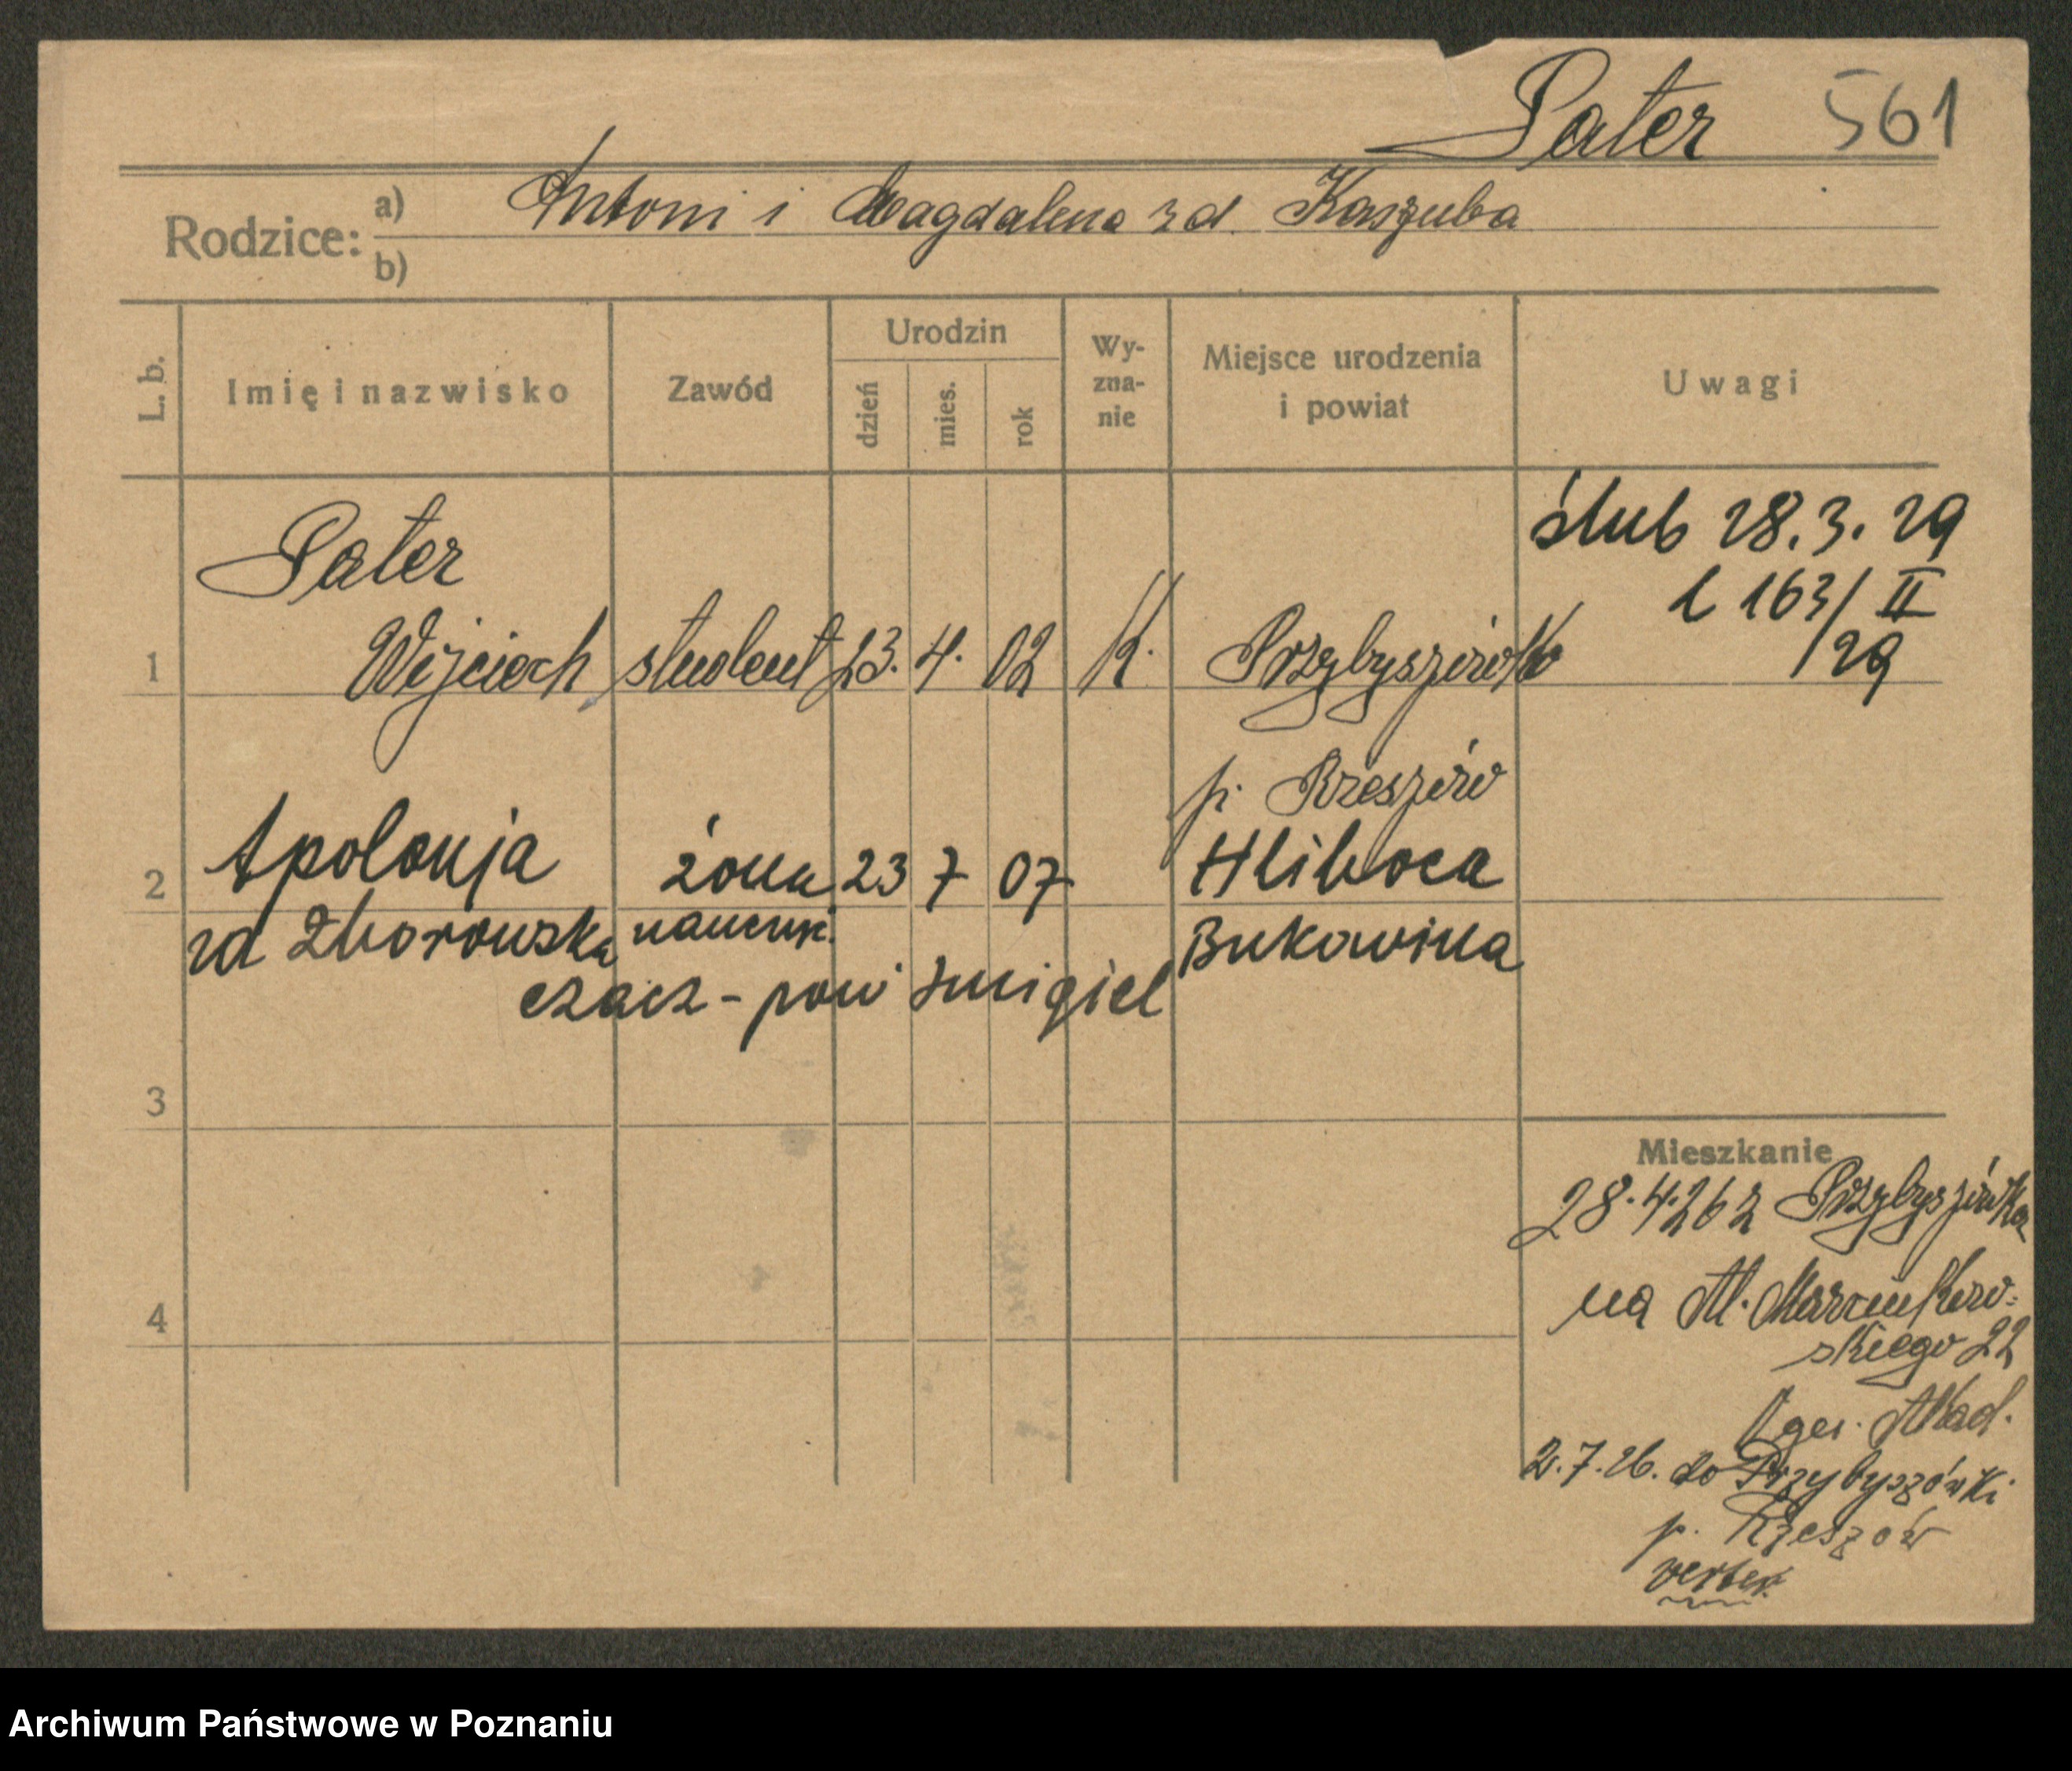 Pater 561
Rodzice: a) Antoni i Magdalena zd. Kaszuba
b)
L. b. Imię i nazwisko Zawód Urodzin dzień mies. rok Wy-zna-nie Miejsce urodzenia i powiat Uwagi
ślub 28.3.29
L 163/II
/29
Pater
1 Wojciech student 23. 4. 02 K. Przybyszówka
p. Rzeszów
2 Apolonja żona 23 7 07 Hliboca
zd Zborowska nauczyc. Bukowina
czacz - pow śmigiel
3
Mieszkanie
28.4.26 z Przybyszówka
na Al. Marcinkow=
4
skiego 22
Akad.
2.7.26. do Przybyszówki
p. Rzeszów
verte
Archiwum Państwowe w Poznaniu